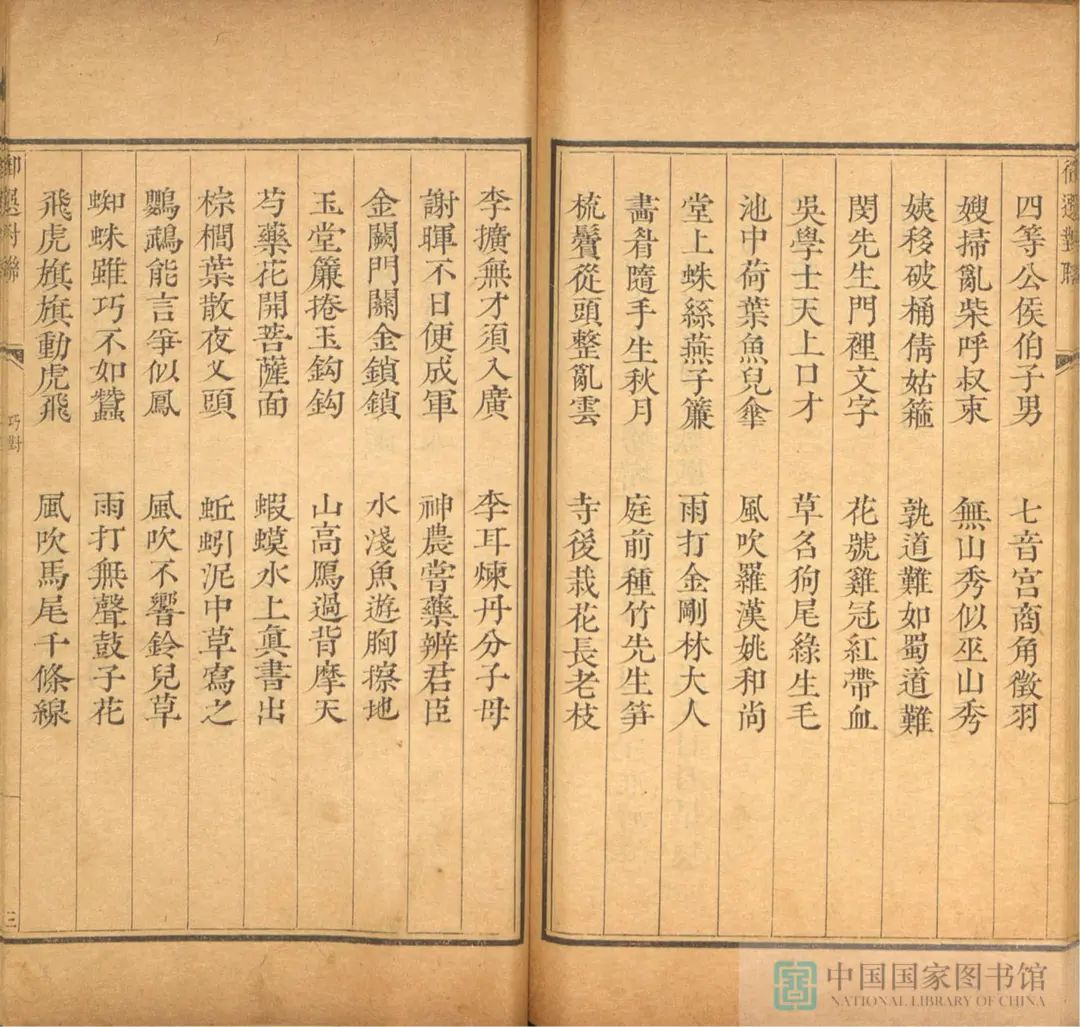 四等公侯伯子男　七音宮商角徵羽
嫂掃亂柴呼叔束　無山秀似巫山秀
姨移破桶倩姑箍　孰道難如蜀道難
閔先生門裡文字　花號雞冠紅帶血
吳學士天上口才　草名狗尾綠生毛
池中荷葉魚兒傘　風吹羅漢姚和尚
堂上蛛絲燕子簾　雨打金剛林大人
畵眉隨手生秋月　庭前種竹先生笋
梳鬢從頭整亂雲　寺後栽花長老枝
李擴無才須入廣　李耳煉丹分子母
謝暉不日便成軍　神農嘗藥辨君臣
金闕門關金鎖鎖　水淺魚遊胸擦地
玉堂簾捲玉鈎鈎　山高鴈過背摩天
芍藥花開菩薩面　蝦蟆水上眞書出
棕櫚葉散夜叉頭　蚯蚓泥中草寫之
鸚鵡能言爭似鳳　風吹不響鈴兒草
蜘蛛雖巧不如蠶　雨打無聲鼓子花
飛虎旗旗動虎飛　風吹馬尾千條線
御選對聯
巧對
三
中国国家图书馆
NATIONAL LIBRARY OF CHINA